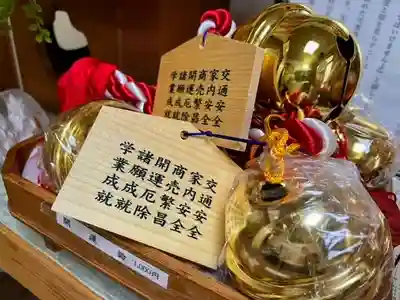 交通安全
家内安全
商売繁昌
開運厄除
諸願成就
学業成就
交通安全
家内安全
商売繁昌
開運厄除
諸願成就
学業成就
開運鈴 1,000円